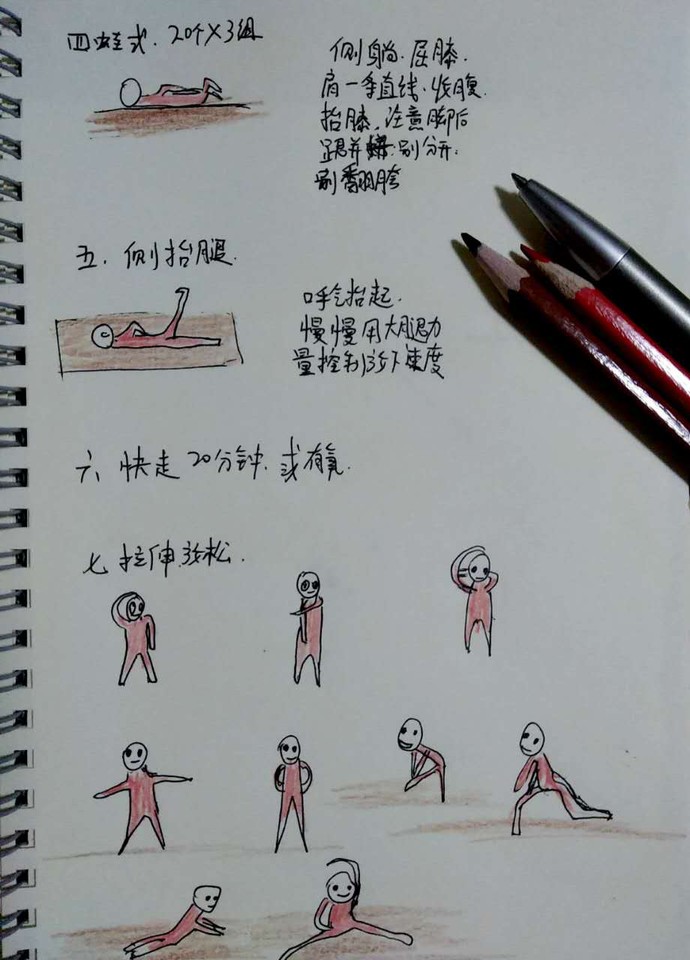 四 蛙式. 20个X3组
侧躺. 屈膝.
肩一条直线. 收腹.
抬膝. 注意脚后
跟并 别分开.
别翻胯
五. 侧抬腿.
呼气抬起.
慢慢用大腿力
量控制放下速度
六、快走20分钟. 或有氧.
七 拉伸放松.